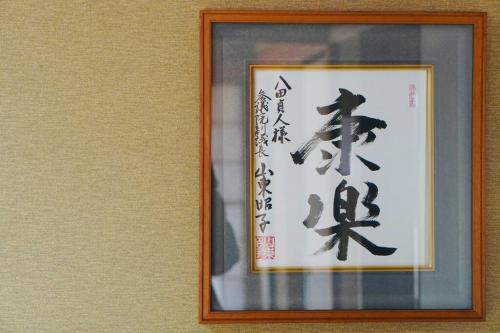 康楽
八田貞人様
参議院議長 山東昭子